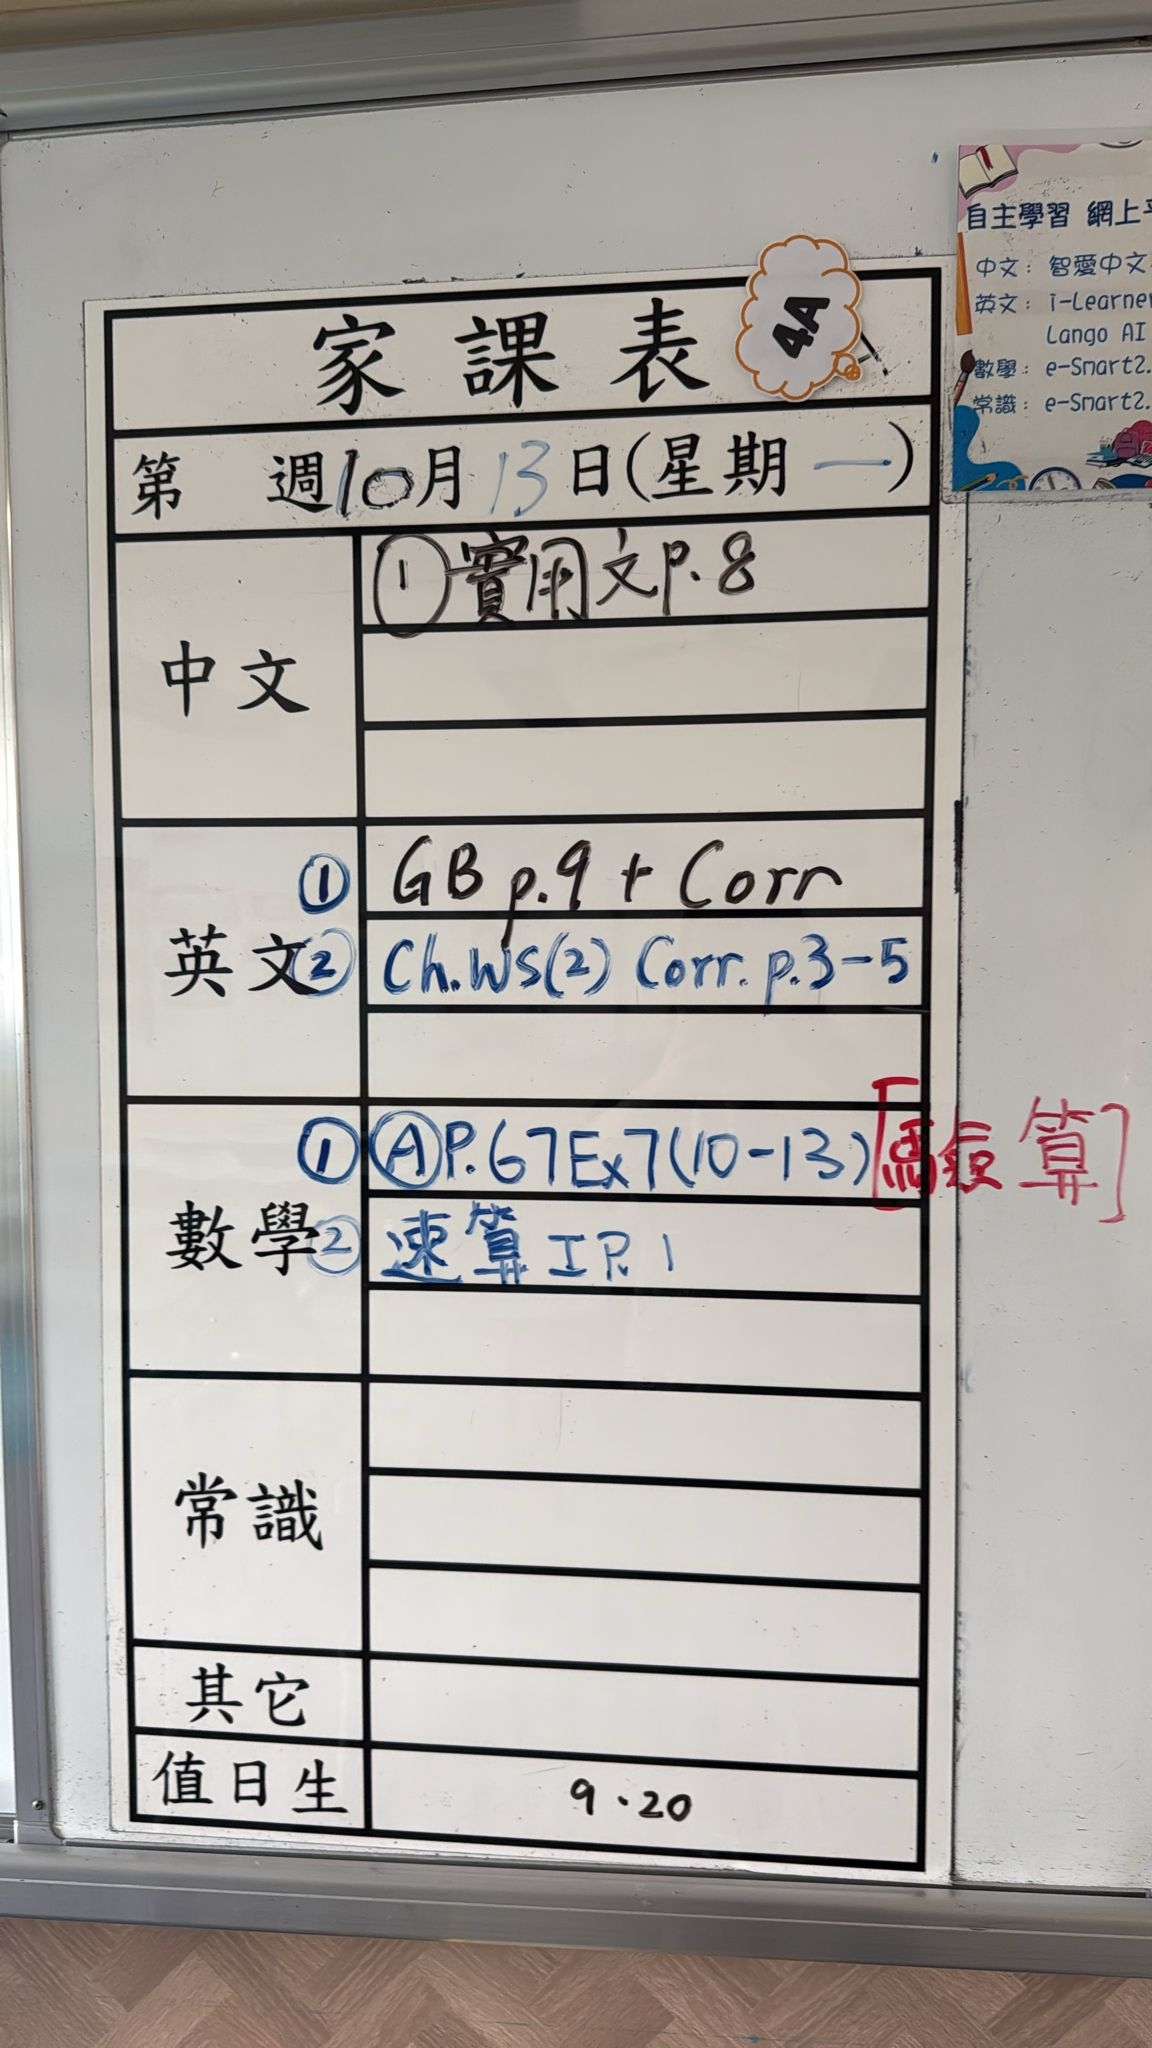 家課表
4A
第 週10月13日(星期一)
中文
① 實用文 p.8
英文
① GB p.9 + Corr
② Ch.WS(2) Corr. p.3-5
數學
① Ⓐ P.67 Ex7(10-13) [驗算]
② 速算 I P.1
常識
其它
值日生
9.20
自主學習 網上
中文: 智愛中文
英文: i-Learner
Lango AI
數學: e-Smart2.
常識: e-Smart2.